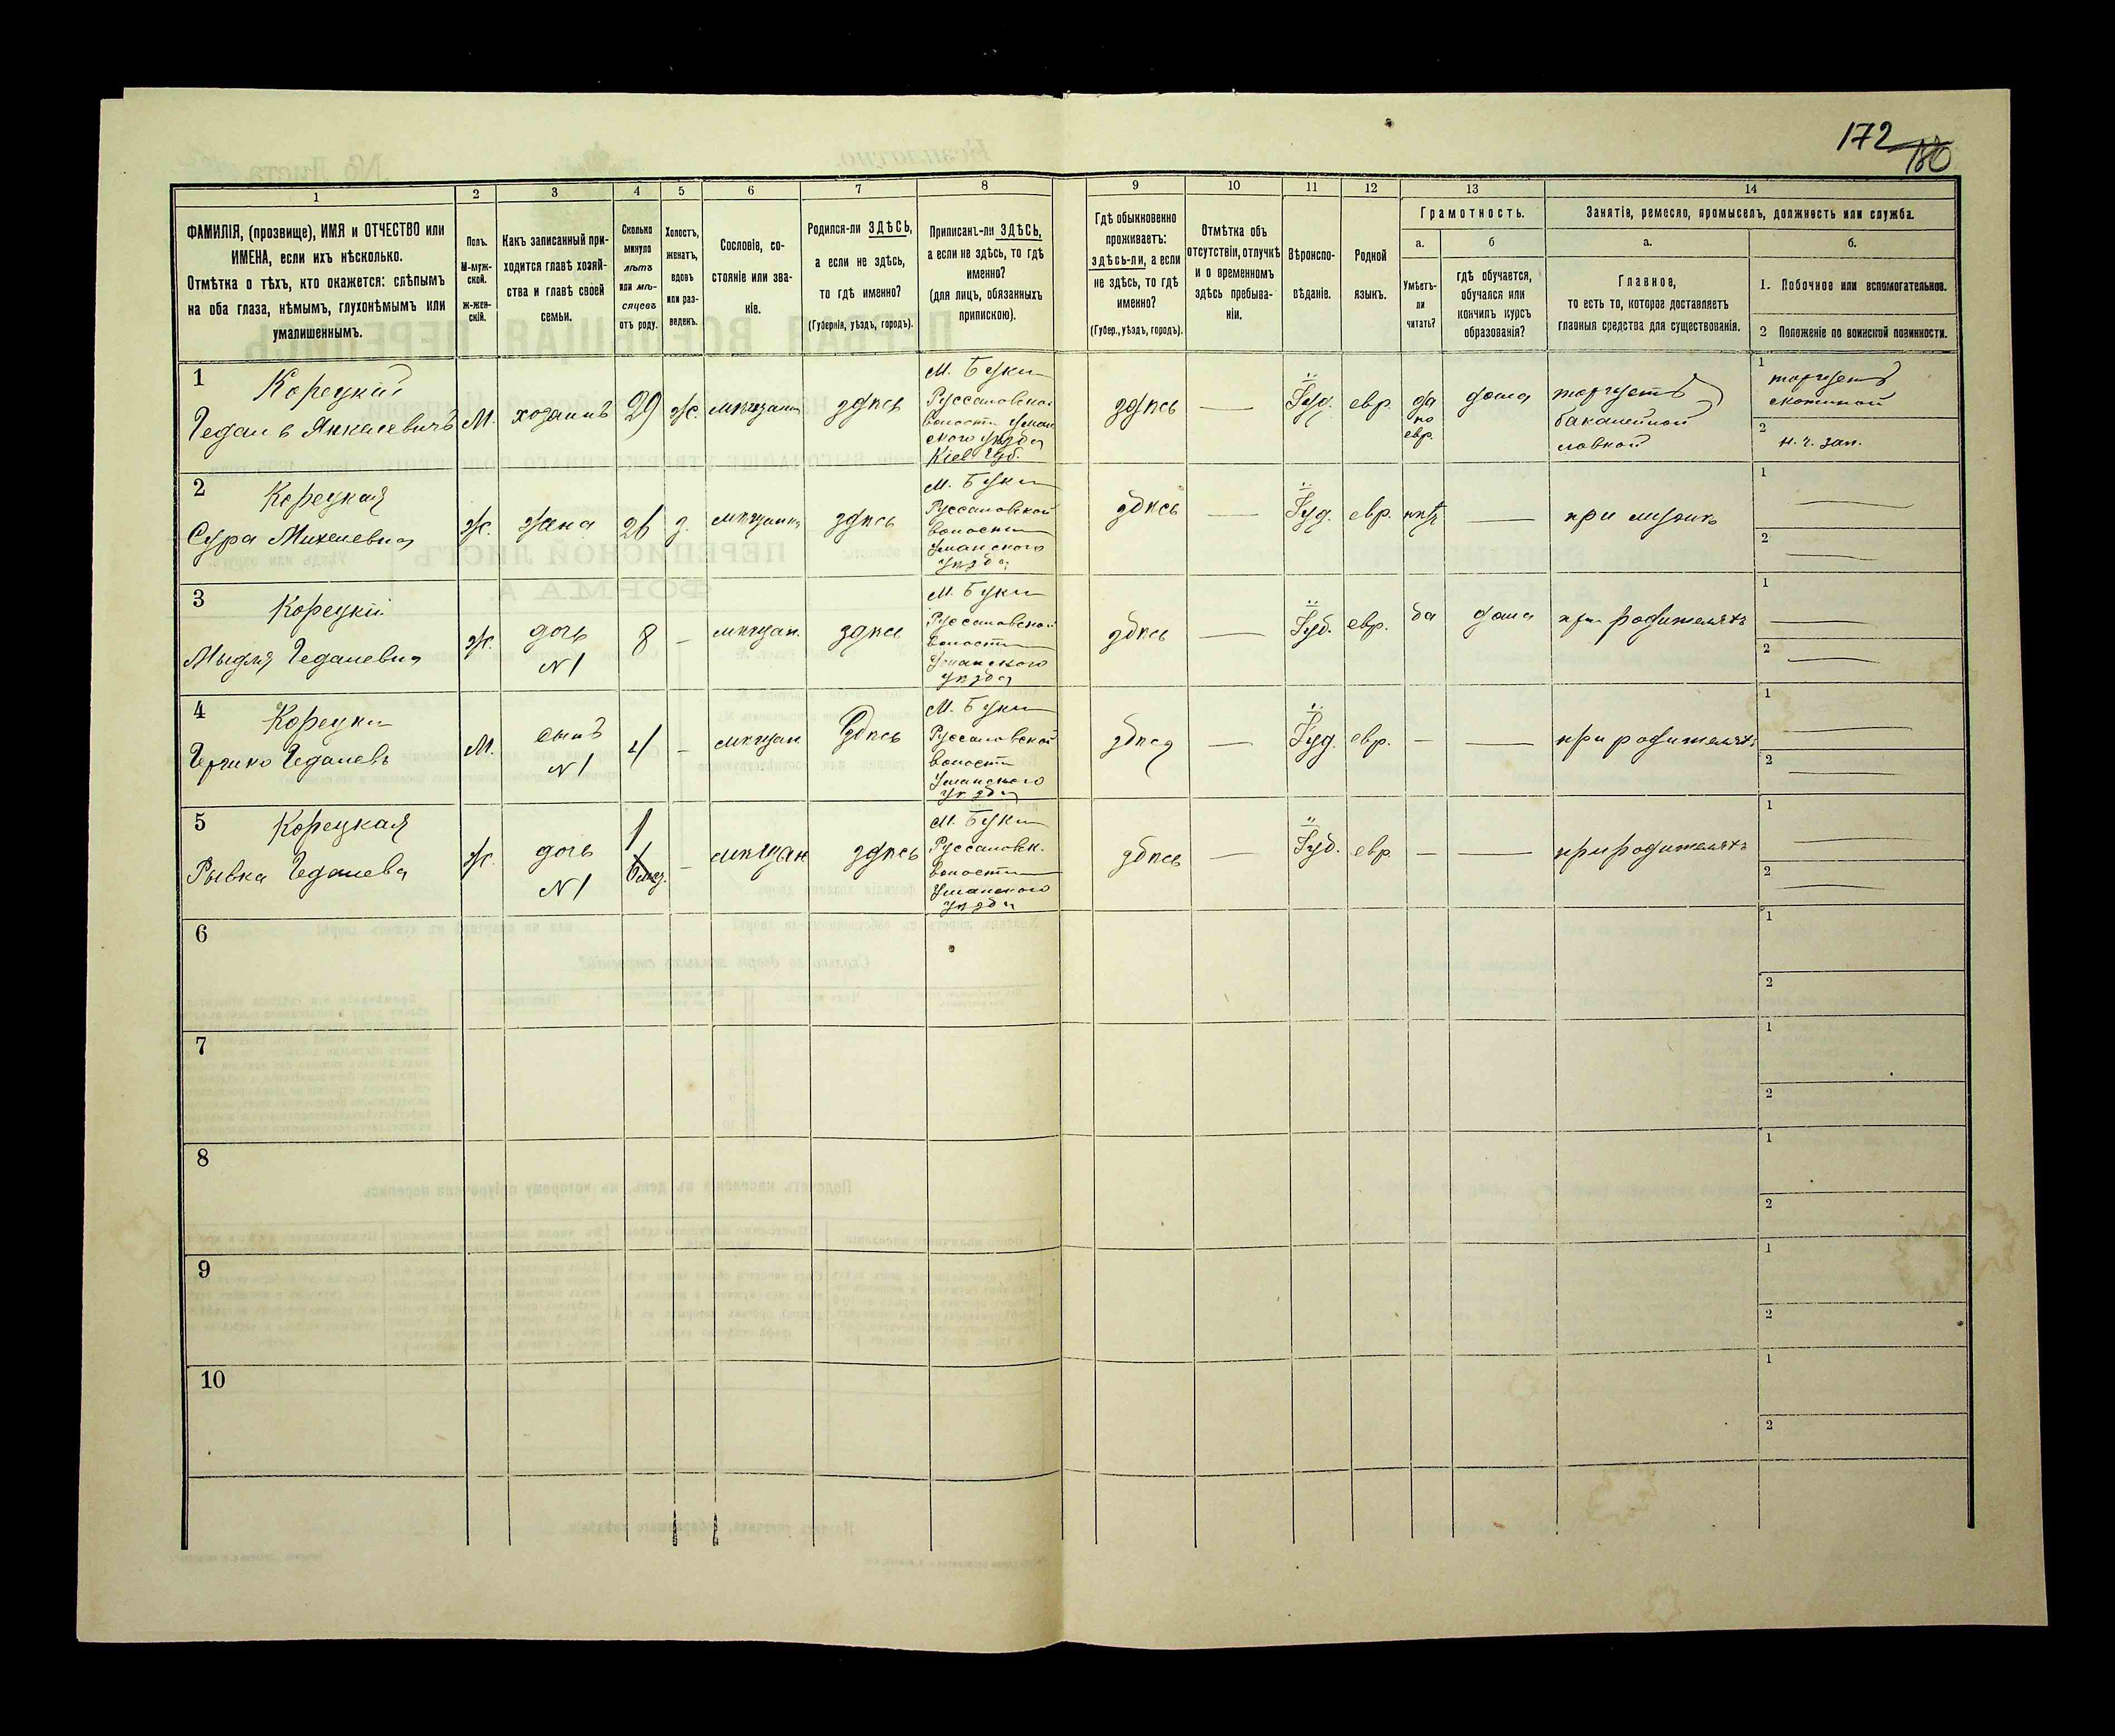 172
180
1
2
3
4
5
6
7
8
9
10
11
12
13
14
ФАМИЛІЯ, (прозвище), ИМЯ и ОТЧЕСТВО или
ИМЕНА, если ихъ нѣсколько.
Отмѣтка о тѣхъ, кто окажется: слѣпымъ
на оба глаза, нѣмымъ, глухонѣмымъ или
умалишеннымъ.
Полъ.
М-муж-
ской.
ж-жен-
скій.
Какъ записанный при-
ходится главѣ хозяй-
ства и главѣ своей
семьи.
Сколько
минуло
лѣтъ
или мѣ-
сяцевъ
отъ роду.
Холостъ,
женатъ,
вдовъ
или раз-
веденъ.
Сословіе, со-
стояніе или зва-
ніе.
Родился-ли ЗДѢСЬ,
а если не здѣсь,
то гдѣ именно?
(Губернія, уѣздъ, городъ).
Приписанъ-ли ЗДѢСЬ,
а если не здѣсь, то гдѣ
именно?
(для лицъ, обязанныхъ
припискою).
Гдѣ обыкновенно
проживаетъ:
здѣсь-ли, а если
не здѣсь, то гдѣ
именно?
(Губер., уѣздъ, городъ).
Отмѣтка объ
отсутствіи, отлучкѣ
и о временномъ
здѣсь пребыва-
ніи.
Вѣроиспо-
вѣданіе.
Родной
языкъ.
Грамотность.
а.
Умѣетъ-
ли
читать?
б
гдѣ обучается,
обучался или
кончилъ курсъ
образованія?
Занятіе, ремесло, промыселъ, должность или служба.
а.
Главное,
то есть то, которое доставляетъ
главныя средства для существованія.
б.
1. Побочное или вспомогательное.
2 Положеніе по воинской повинности.
1
Корецкій
Гедаль Янкелевичъ
М.
хозяинъ
29
ж.
мѣщанин
здѣсь
М. Буки
Руссаловской
волости Уман
ского уѣзда
Кіев Губ.
здѣсь
—
Іуд.
евр.
да
по
евр.
дома
торгуетъ
бакалейной
лавкой
1
торгуетъ
скотиной
2
н. ч. зап.
2
Корецкая
Сура Михелевна
ж.
жена
26
з.
мѣщанка
здѣсь
М. Буки
Руссаловской
волости
Уманского
уѣзда
здѣсь
—
Іуд.
евр.
нѣт
—
при мужѣ
1
—
2
—
3
Корецкій
Гедалевна
ж.
дочь
N 1
8
—
мѣщан.
здѣсь
М. Буки
Руссаловской
волости
Уманского
уѣзда
здѣсь
—
Іуд.
евр.
да
дома
при родителяхъ
1
—
2
—
4
Корецки
Гершко Гедалевъ
М.
сынъ
N 1
4
—
мѣщан
здѣсь
М. Буки
Руссаловской
волости
Уманского
уѣзда
здѣсь
—
Іуд.
евр.
—
—
при родителяхъ
1
—
2
—
5
Корецкая
Рывка Гедалева
ж.
дочь
N 1
1
—
мѣщан
здѣсь
М. Буки
Руссаловск.
волости
Уманского
уѣзда
здѣсь
—
Іуд.
евр.
—
—
при родителяхъ
1
—
2
—
6
1
2
7
1
2
8
1
2
9
1
2
10
1
2